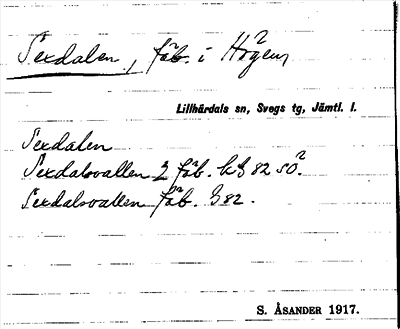 Sexdalen, fäb. i Högen
Lillhärdals sn, Svegs tg, Jämtl. l.
Sexdalen
Sexdalsvallen 2 fäb. kG 82 SO.
Sexdalsvallen fäb. G 82.
S. ÅSANDER 1917.